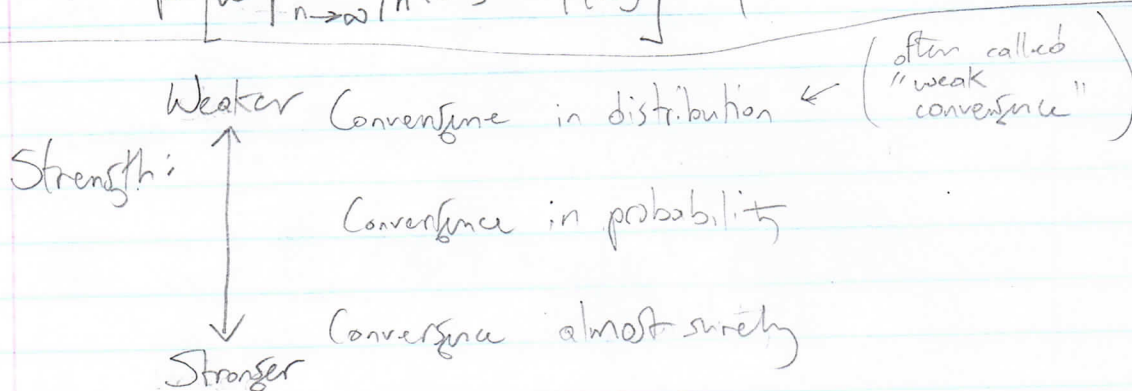 n→∞
Weaker Convergence in distribution ← (often called "weak convergence")
Strength:
Convergence in probability
Convergence almost surely
Stronger